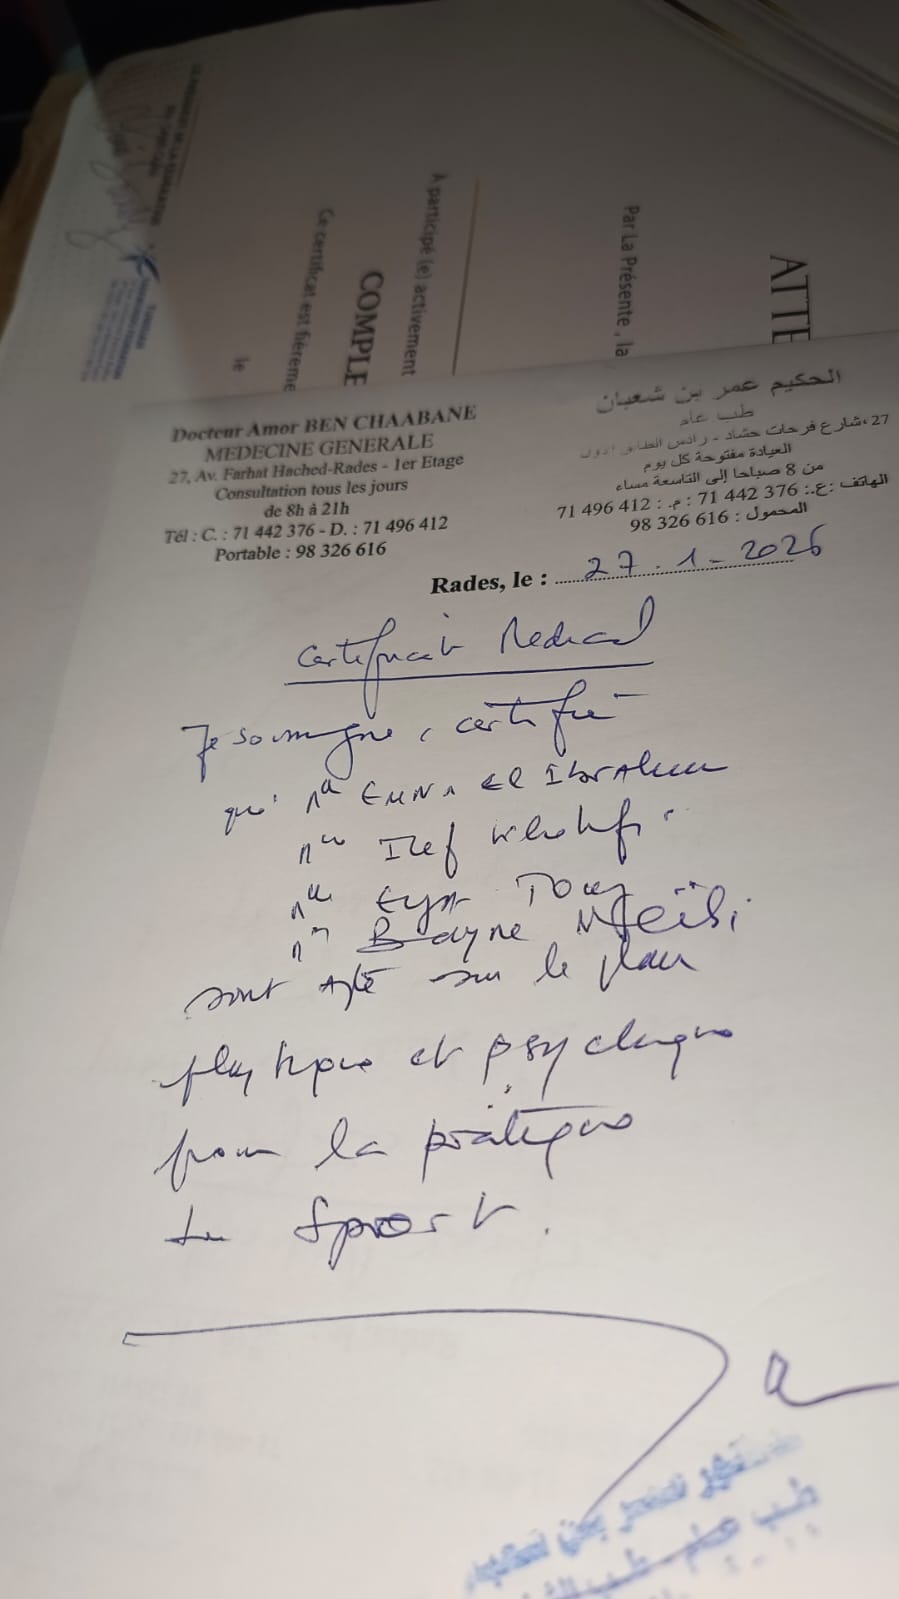 ATTE
Par La Présente , la
A participé (e) activement
COMPLE
Ce certificat est fièreme
le
Docteur Amor BEN CHAABANE
MEDECINE GENERALE
27, Av. Farhat Hached-Rades - 1er Etage
Consultation tous les jours
de 8h à 21h
Tél : C. : 71 442 376 - D. : 71 496 412
Portable : 98 326 616
الحكيم عمر بن شعبان
طب عام
27، شارع فرحات حشاد - رادس الطابق الاول
العيادة مفتوحة كل يوم
من 8 صباحا إلى التاسعة مساء
الهاتف :ع.: 376 442 71 : م. : 412 496 71
المحمول : 616 326 98
Rades, le : 27.1-2026
Certificat Medical
Je soussigné, certifie
que Mlle EMNA El
Ilef
Eya
sont apte sur le plan
physique et psychique
pour la pratique
du Sport.